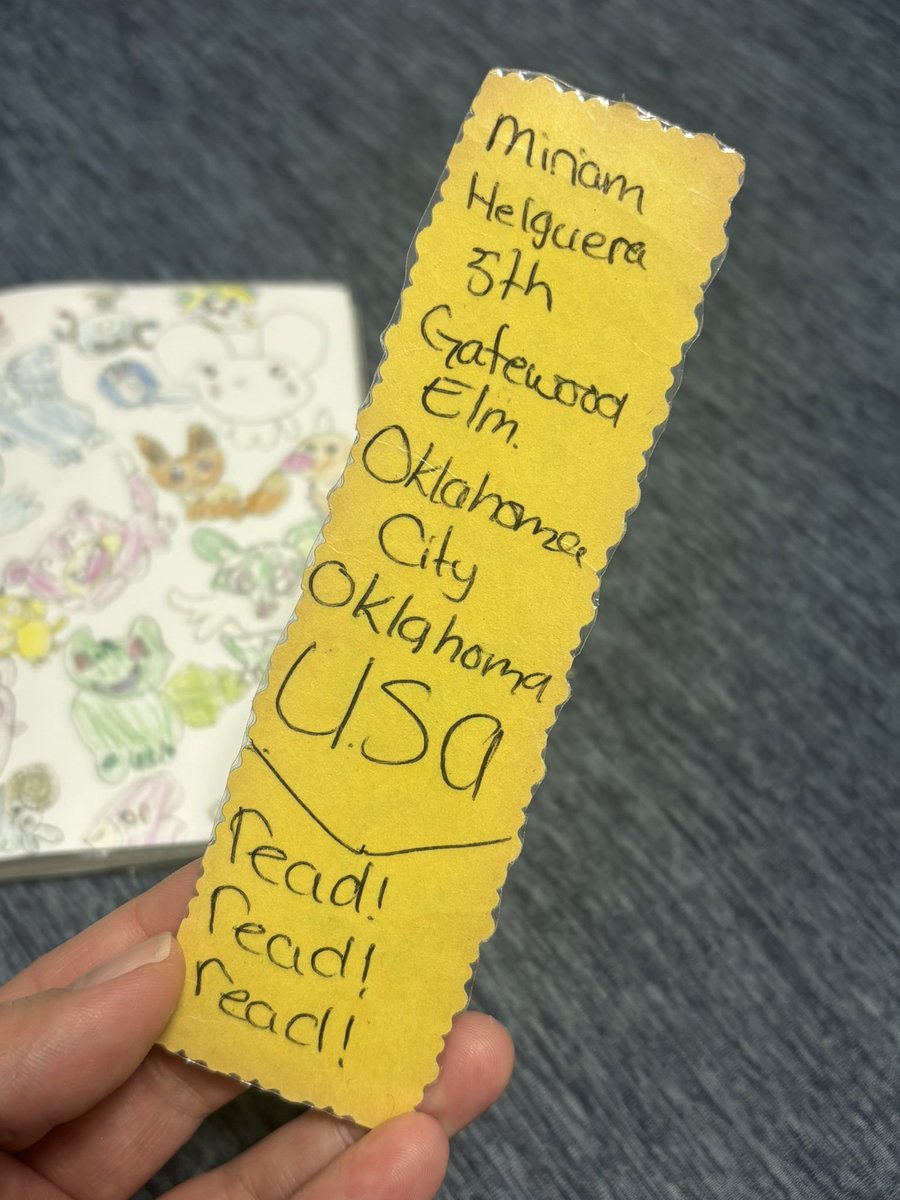 Miriam
Helguera
5th
Gatewood
Elm.
Oklahoma
City
Oklahoma
U.S a
read!
read!
read!